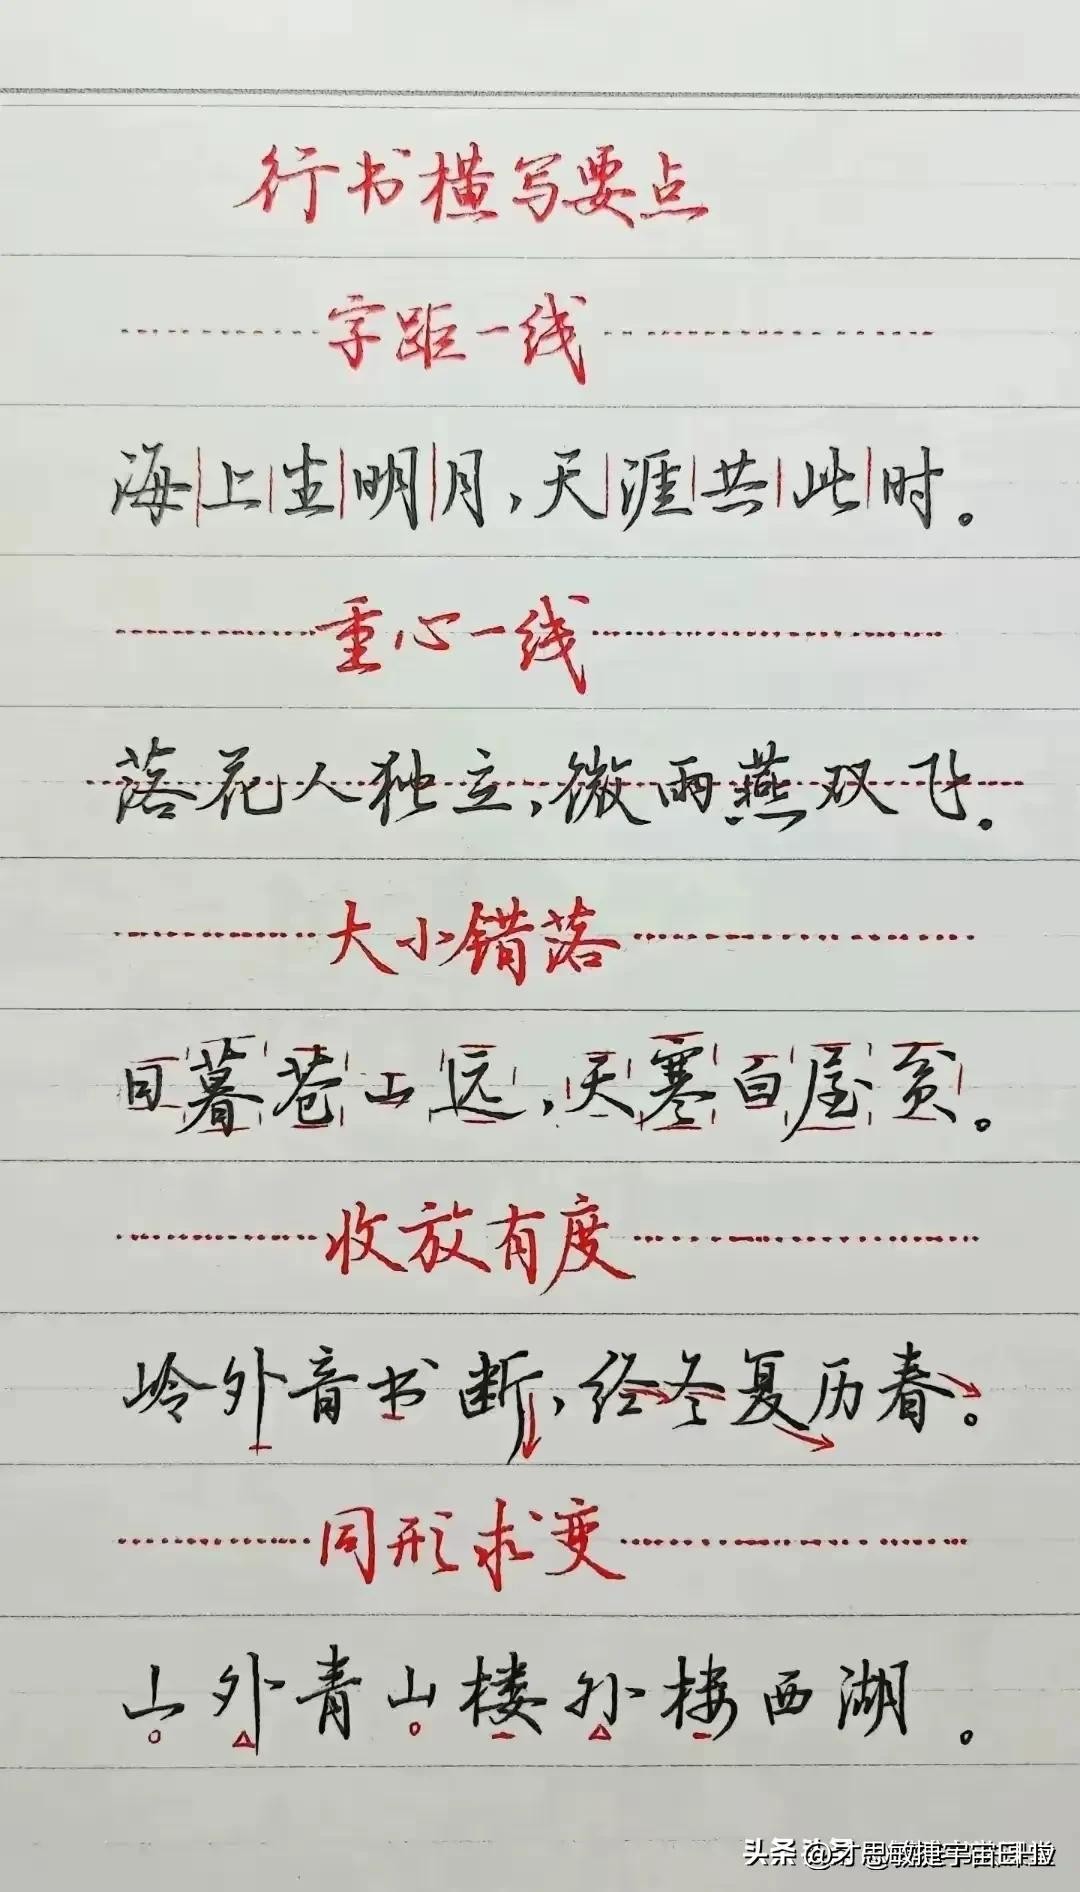 行书横写要点
字距一线
海上生明月，天涯共此时。
重心一线
落花人独立，微雨燕双飞。
大小错落
日暮苍山远，天寒白屋贫。
收放有度
岭外音书断，经冬复历春。
同形求变
山外青山楼外楼西湖。
头条 @才思敏捷宇宙